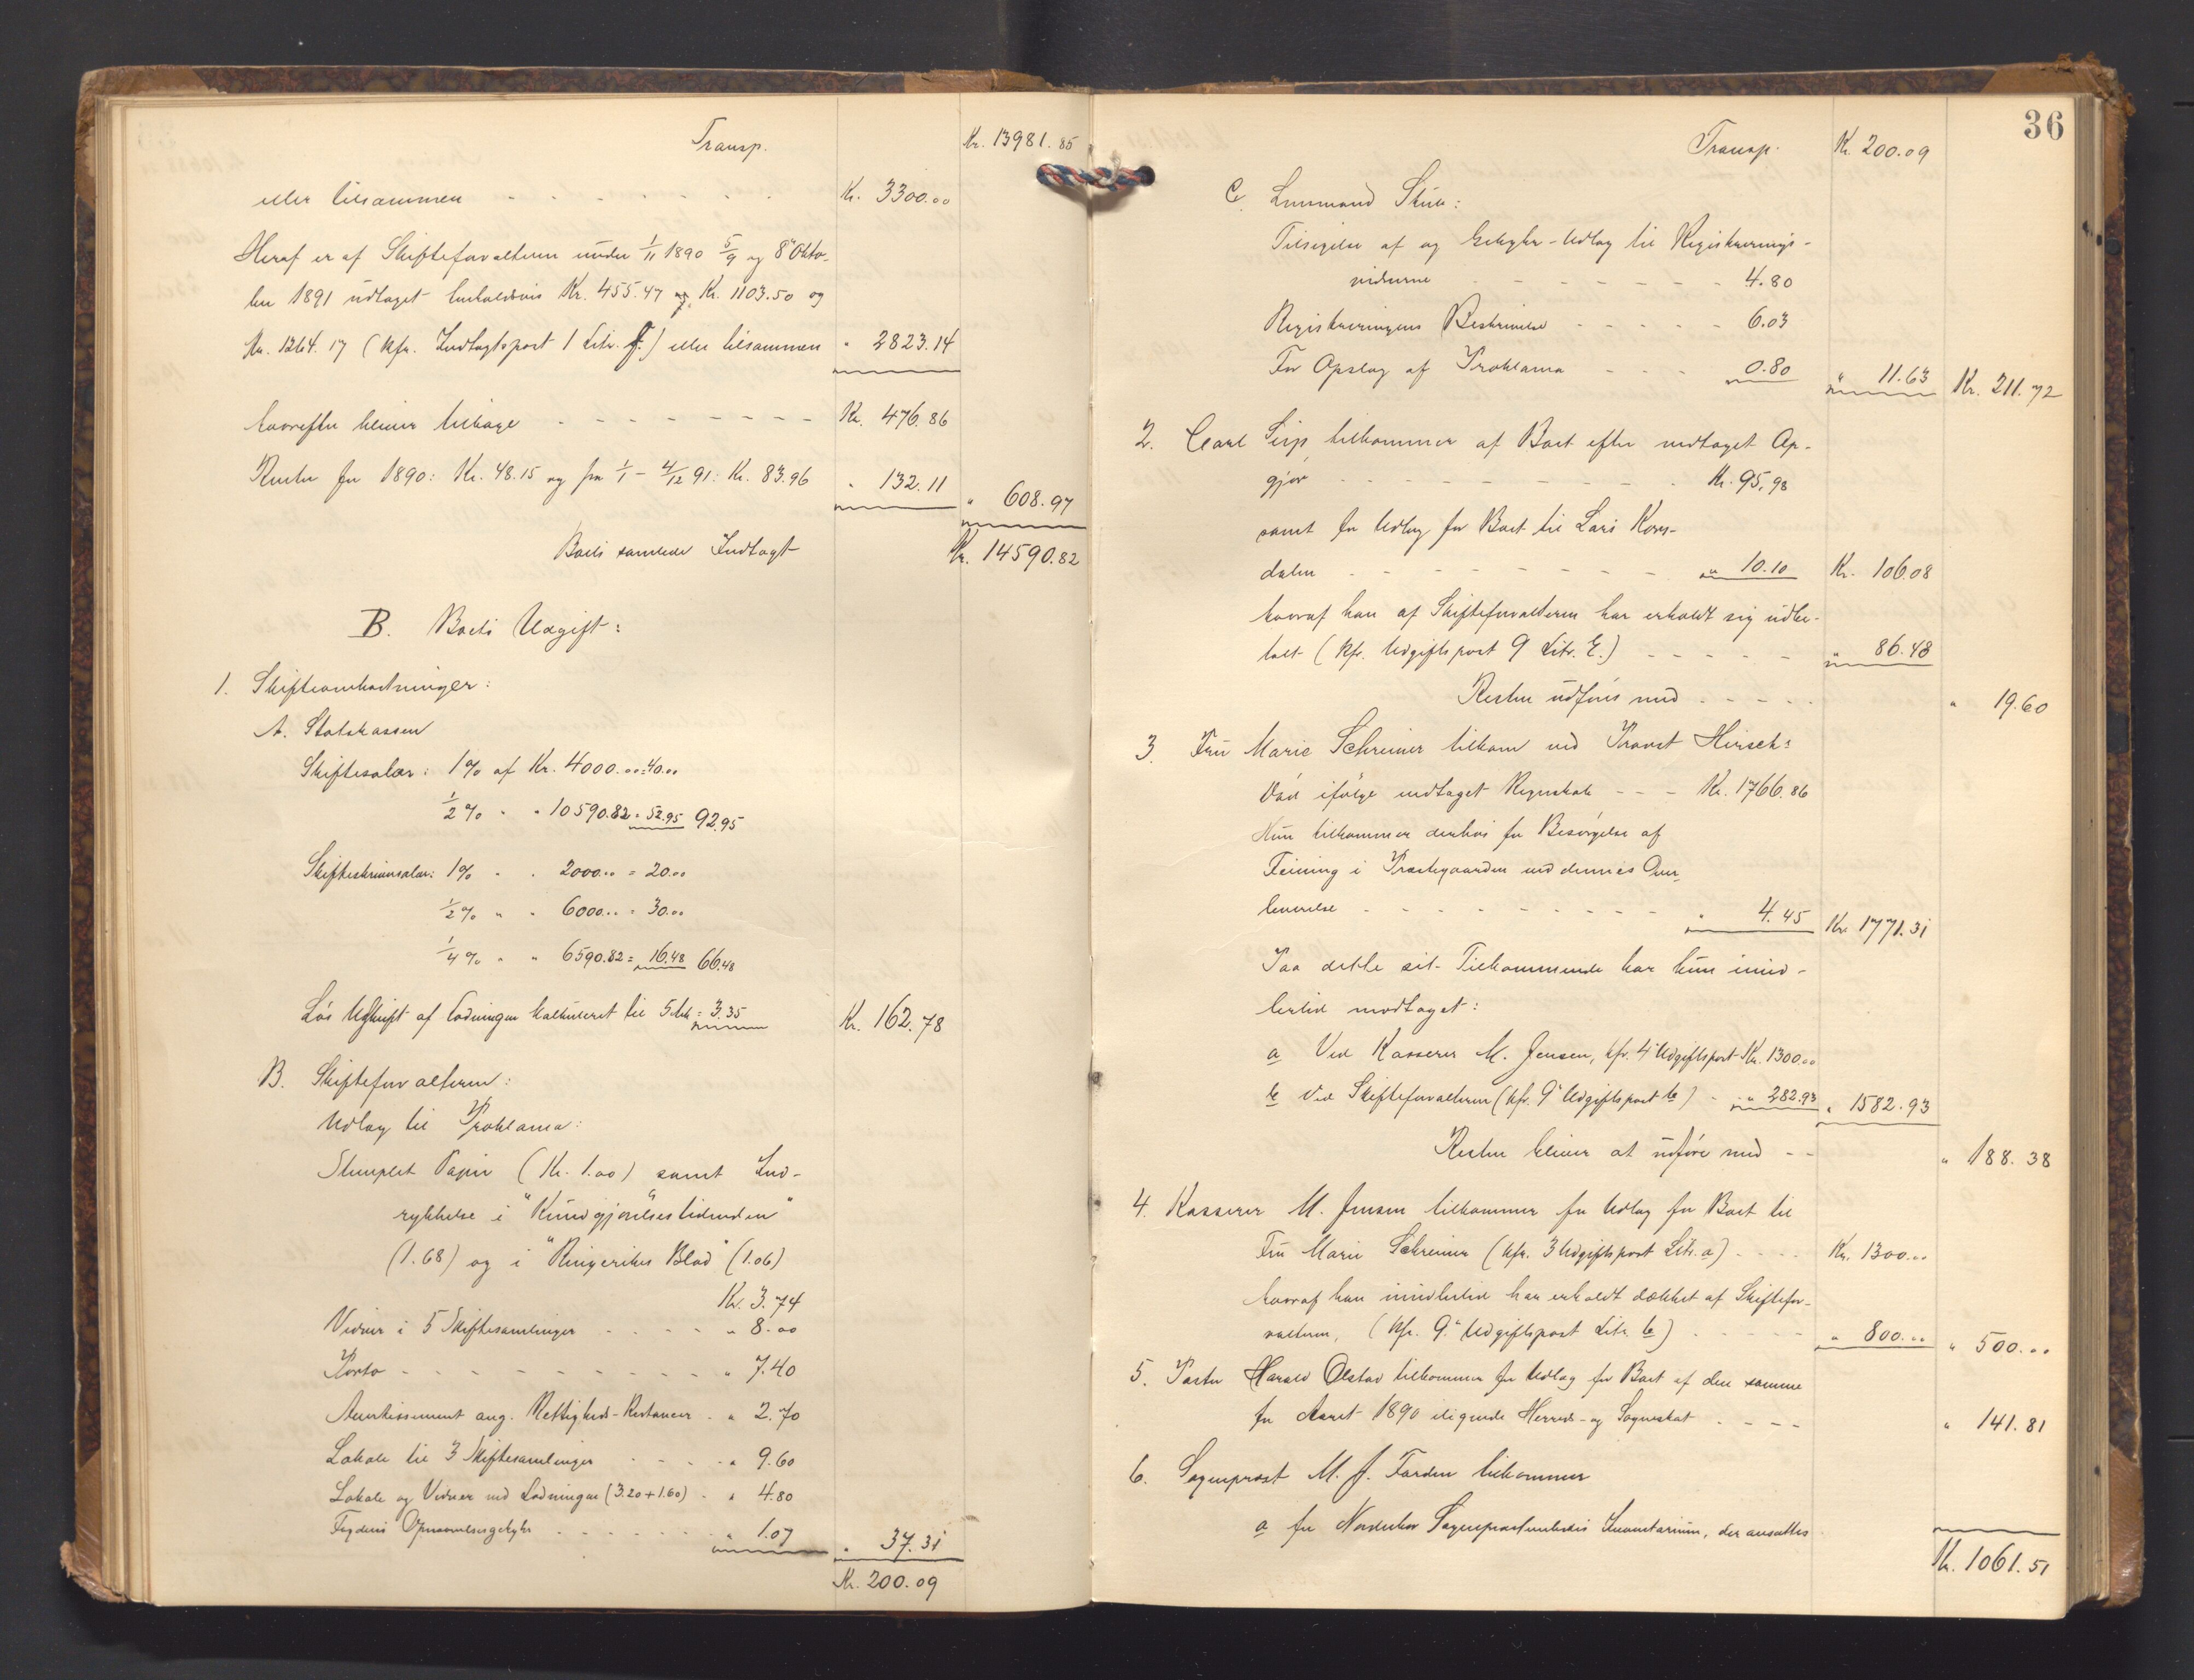 Transp. Kr. 13981.85
eller tilsammen - - - - - - - Kr. 3300.00
Heraf er af Skifteforvalteren under 1/11 1890 5/9 og 8de Okto-
ber 1891 udtaget henholdsvis Kr. 455.47 og Kr. 1103.50 og
Kr. 1264.17 (Kfr. Indtægtspost 1 Litr. f.) eller tilsammen " 2823.14
hvorefter bliver tilbage - - - - - - - - Kr. 476.86
Renter for 1890: Kr. 48.15 og fra 1/1 - 4/12 91: Kr. 83.96 " 132.11 " 608.97
Boets samlede Indtægt Kr. 14590.82
B. Boets Udgift:
1. Skifteomkostninger:
A. Statskassen
Skiftesalær: 1% af Kr. 4000.00 = 40.00
1/2 % " " 10590.82 = 52.95 92.95
Skifteskriversalær: 1% " " 2000.00 = 20.00
1/2 % " " 6000.00 = 30.00
1/4 % " " 6590.82 = 16.48 66.48
Løs Udskrift af Lodningen kalkuleret til 5 Ark = 3.35 Kr. 162.78
B. Skifteforvalteren:
Udlæg til Proklama:
Stemplet Papir (Kr. 1.00) samt Ind-
rykkelse i "Kundgjørelsestidenden"
(1.68) og i "Ringerikes Blad" (1.06)
Kr. 3.74
Vidner i 5 Skiftesamlinger - - - - " 8.00
Porto - - - - - - - - - " 7.40
Avertissement ang. Rettigheds-Restancer - " 2.70
Lokale til 3 Skiftesamlinger - - - - " 9.60
Lokale og Vidner ved Lodningen (3.20 + 1.60) - " 4.80
Fogdens Opnævnelsesgebyhr - - - - - " 1.07 " 37.31
Kr. 200.09
36
Transp. Kr. 200.09
C. Lensmand Skule:
Tilsigelse af og Gebyhr-Udlæg til Registrerings-
vidnerne - - - - - - - 4.80
Registreringens Beskrivelse - - - - - 6.03
For Opslag af Proklama - - - 0.80 " 11.63 Kr. 211.72
2. Carl tilkommer af Boet efter vedtaget Op-
gjør - - - - - - - - - Kr. 95.98
samt for Udlæg for Boet til Lars Kors-
dalen - - - - - - - - " 10.10 Kr. 106.08
hvoraf han af Skifteforvalteren har erholdt sig udbe-
talt (Kfr. Udgiftspost 9 Litr. E.) - - - - - " 86.48
Resten udføres med - - - - - " 19.60
3. Fru Marie Schreiner tilkom ved Provst Hirsch's
Død ifølge vedtaget Regnskab - - - Kr. 1766.86
Hun tilkommer derhos for Besørgelse af
Feining i Præstegaarden ved dennes Over-
leverelse - - - - - - - - " 4.45 Kr. 1771.31
Paa dette sit Tilkommende har hun imid-
lertid modtaget:
a Ved Kasserer M. Jensen, kfr. 4de Udgiftspost Kr. 1300.00
b Ved Skifteforvalteren (kfr. 9de Udgiftspost b) - " 282.93 " 1582.93
Resten bliver at udføre med - - " 188.38
4. Kasserer M. Jensen tilkommer for Udlæg for Boet til
Fru Marie Schreiner (kfr. 3 Udgiftspost Litr. a) - - - - Kr. 1300.00
hvoraf han imidlertid har erholdt dækket af Skiftefor-
valteren, (kfr. 9de Udgiftspost Litr. b) - - - - - " 800.00 " 500.00
5. Pastor Harald Ølstad tilkommer for Udlæg for Boet af den samme
for Aaret 1890 ilignede Herreds- og Sogneskat - - - - " 141.81
6. Sogneprest M. J. Færden tilkommer
a for Norderhov Sogneprestembedes Inventarium, der ansættes
Kr. 1061.51